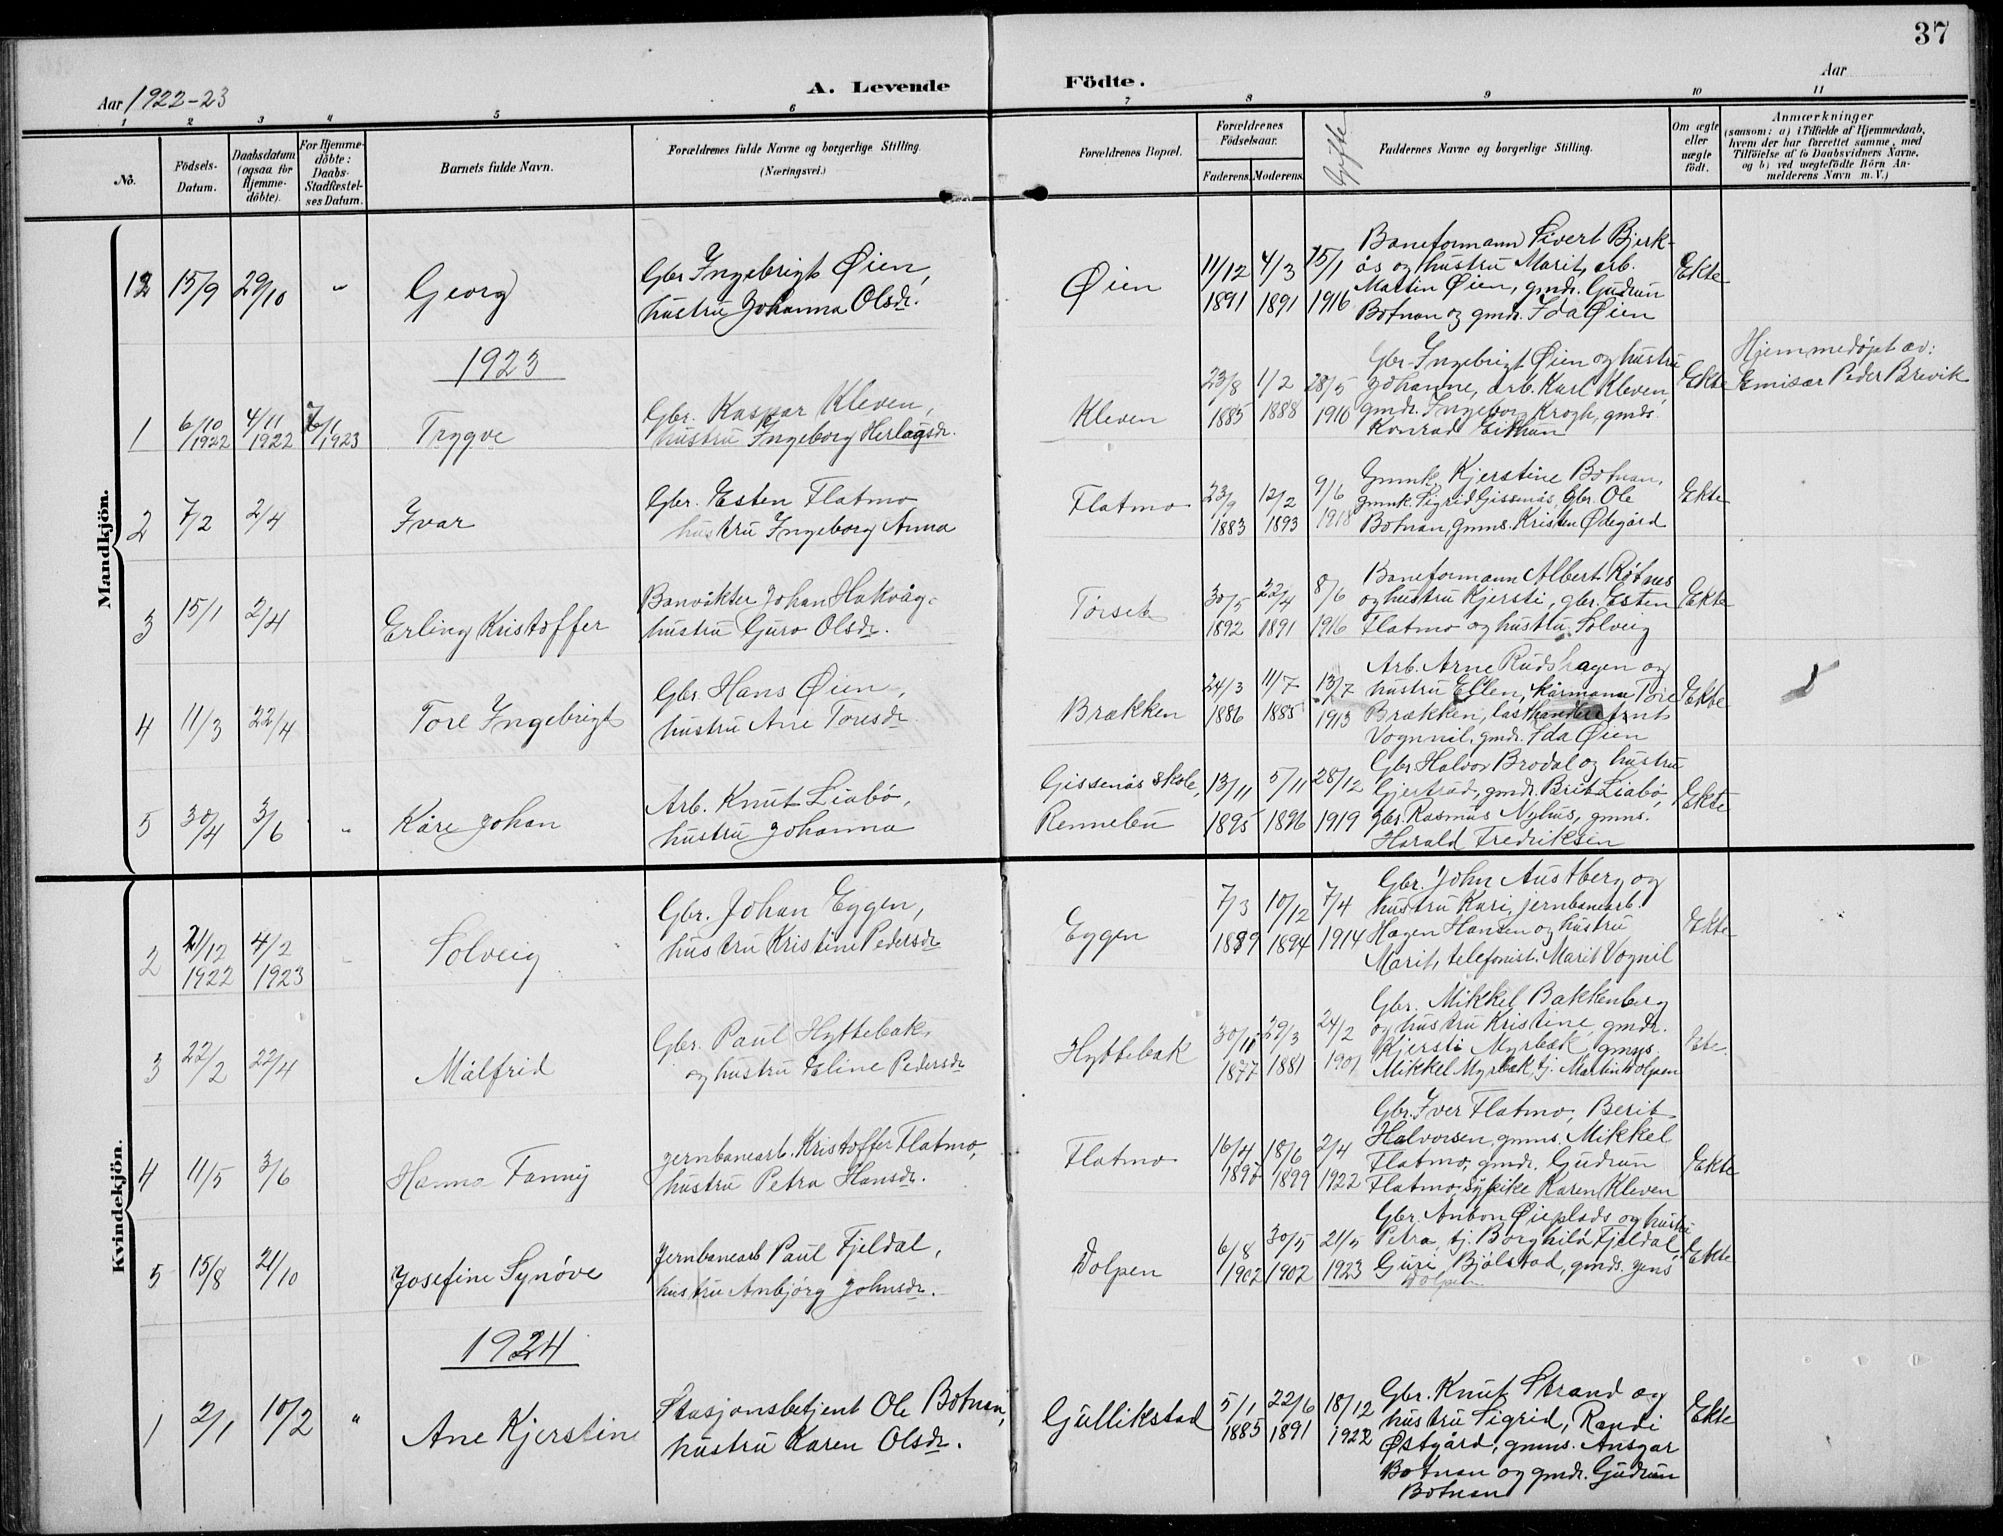 37
Aar 1922-23
A. Levende Födte.
Aar
1 2 3 4 5 6 7 8 9 10 11
No.
Födsels-Datum.
Daabsdatum (ogsaa for Hjemme-döbte).
For Hjemme-döbte: Daabs-Stadfæstel-ses Datum.
Barnets fulde Navn.
Forældrenes fulde Navne og borgerlige Stilling. (Næringsvei.)
Forældrenes Bopæl.
Forældrenes Födselsaar.
Faderens. Moderens.
Gifte
Faddernes Navne og borgerlige Stilling.
Om ægte eller uægte födt.
Anmærkninger
(saasom: a) i Tilfælde af Hjemmedaab,
hvem der har forrettet samme, med
Tilföielse af to Daabsvidners Navne,
og b) ved uægtefödte Börn An-
melderens Navn m. V.)
Mandkjön.
12 15/9 29/10 " Georg
Gbr Ingebrigt Øien,
hustru Johanna Olsdr.
Øien
11/12 1891 4/3 1891 15/1 1916
Baneformann Sivert Bjerk-
ås og hustru Marit, arb.
Martin Øien, gmdr. Gudrun
Botnan og gmdr. Ida Øien
Ekte
1923
1 6/10 1922 4/11 1922 7/1 1923 Trygve
Gbr. Kaspar Kleven,
hustru Ingeborg Herlagsdr.
Kleven
23/8 1885 1/2 1888 28/5 1910
Gbr. Ingebrigt Øien og hustru
Johanne, arb. Karl Kleven,
gmdr. Ingeborg Krogh, gmds.
Konrad
Ekte
Hjemmedøpt av:
Emisær Peder Brevik
2 7/2 2/4 Ivar
Gbr. Esten Flatmo
hustru Ingeborg Anna
Flatmo
23/9 1883 12/2 1893 9/6 1918
Gmnk. Kjerstine Botnan,
gmnk. Sigrid Gissenås, Gbr. Ole
Botnan, gmns. Kristen Ødegård
Ekte
3 15/1 2/4 Erling Kristoffer
Banvakter Johan Hakvåg
hustru Guro Olsdr.
Torset
30/5 1892 22/4 1891 8/6 1916
Baneformann Albert Røtnes
og hustru Kjersti, gbr. Esten
Flatmo og hustru Solveig
Ekte
4 11/3 22/4 Tore Ingebrigt
Gbr. Hans Øien,
hustru Ane Toresdr.
Brækken
24/3 1886 11/7 1885 13/7 1913
Arb. Arne Rudshagen og
hustru Ellen, kårmann Tore
Brækken, lasthandler Arnt
Vognnil, gmdr. Ida Øien
Ekte
5 30/4 3/6 " Kåre Johan
Arb. Knut Liabø,
hustru Johanna
Gissenås skole,
Rennebu
13/11 1895 5/11 1896 28/12 1919
Gbr. Halvor Brodal og hustru
Gjertrud, gmdr. Brit Liabø,
gbr. Rasmus Nyhus, gmns.
Harald Fredriksen
Ekte
Kvindekjön.
2 21/12 1922 4/2 1923 Solveig
Gbr. Johan Eggen,
hustru Kristine Pedersdr
Eggen
7/3 1889 10/12 1894 7/4 1914
Gbr. John Austberg og
hustru Kari, jernbanearb.
Hagen Hansen og hustru
Marit, telefonist. Marit Vognil
Ekte
3 22/2 22/4 Målfrid
Gbr. Paul Hyttebak,
og hustru Eline Pedersdr
Hyttebak
30/11 1877 29/3 1881 24/2 1901
Gbr. Mikkel Bakkenberg
og hustru Kristine, gmdr.
Kjersti Myrbæk, gmns.
Mikkel Myrbæk, tj. Martin Dolpen
4 11/5 3/6 Hanna Fanny
Jernbanearb. Kristoffer Flatmo,
hustru Petra Hansdr.
Flatmo
16/4 1897 18/6 1899 2/4 1922
Gbr. Iver Flatmo, Berit
Halvorsen, gmns. Mikkel
Flatmo, gmdr. Gudrun
Flatmo, sypike Karen Kleven
Ekte
5 15/8 21/10 Josefine Synøve
Jernbanearb Paul Fjeldal,
hustru Anbjørg Johnsdr.
Dolpen
6/8 1902 30/5 1902 21/5 1923
Gbr. Anton Øieplads og hustru
Petra, tj. Borghild Fjeldal,
Guri Bjølstad, gmds. Jens
Dolpen
Ekte
1924
1 2/1 10/2 " Ane Kjerstine
Stasjonsbetjent Ole Botnan,
hustru Karen Olsdr.
Gullikstad
5/1 1885 22/6 1891 18/12 1922
Gbr. Knut Strand og
hustru Sigrid, Randi
Østgård, gmns. Ansgar
Botnan og gmdr. Gudrun
Botnan
Ekte